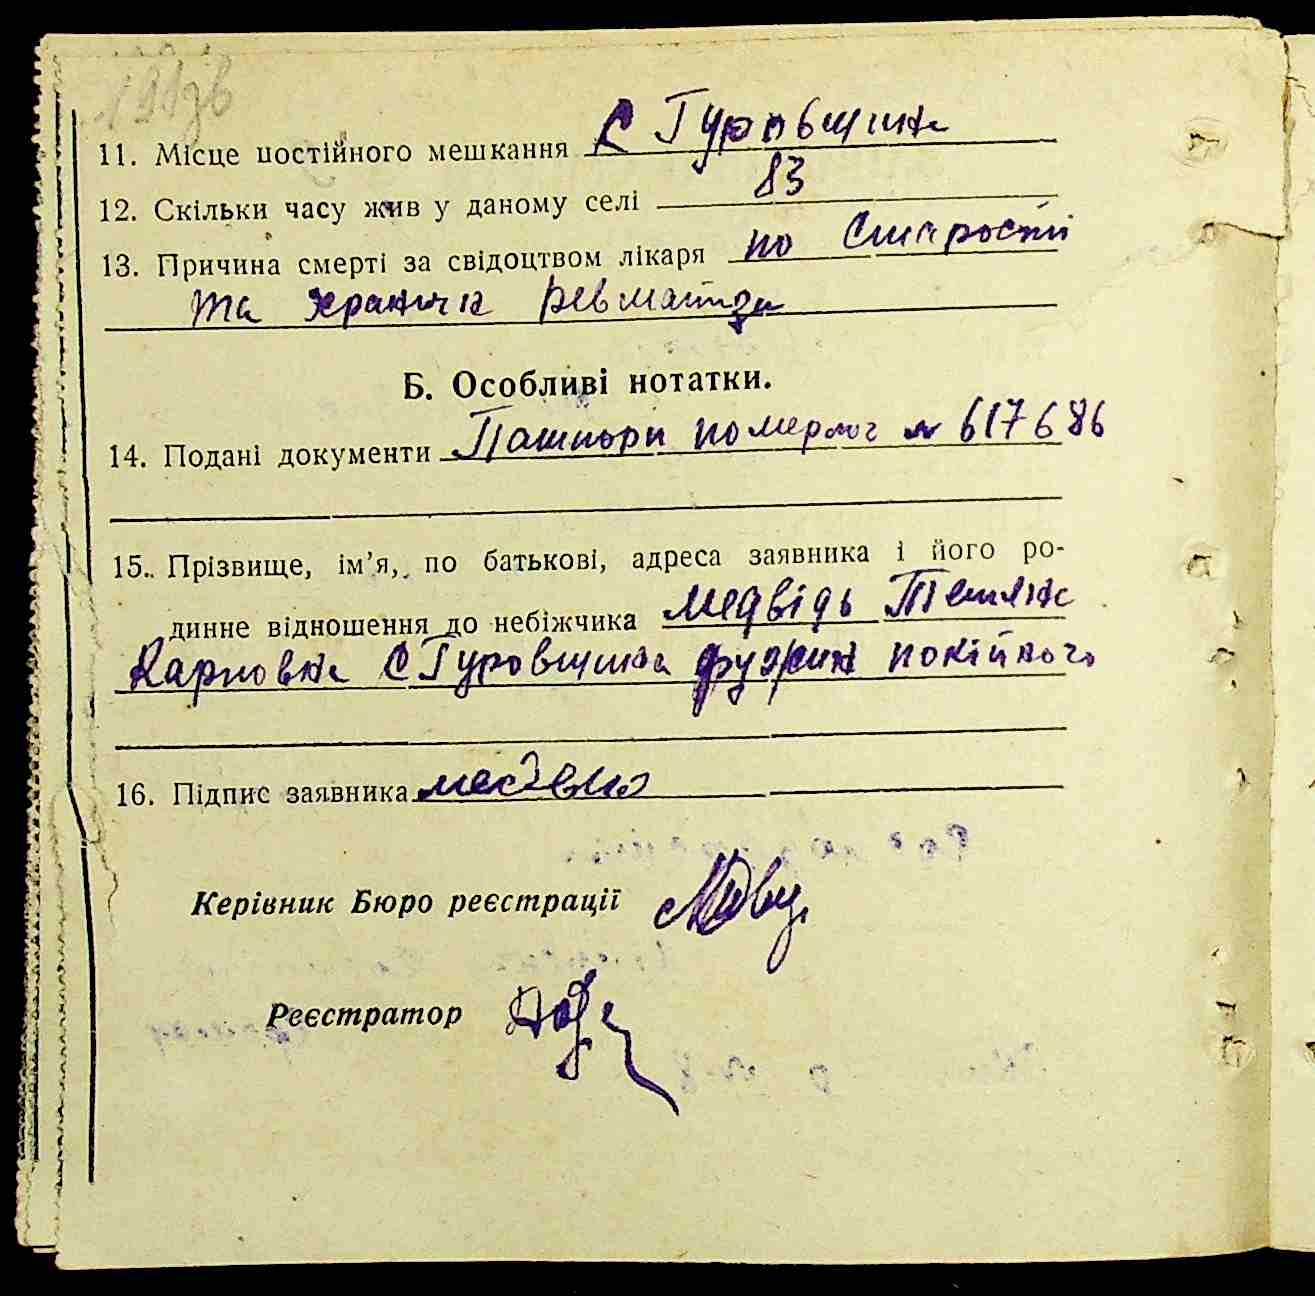 11. Місце постійного мешкання С Гуровщина
12. Скільки часу жив у даному селі 83
13. Причина смерті за свідоцтвом лікаря по старости
та хранича ревматизм
Б. Особливі нотатки.
14. Подані документи Пашпорт померлог № 617686
15. Прізвище, ім’я, по батькові, адреса заявника і його ро-
динне відношення до небіжчика Медвідь Тетяна
Карповна С Гуровщина дружина покійного
16. Підпис заявника
Керівник Бюро реєстрації
Реєстратор